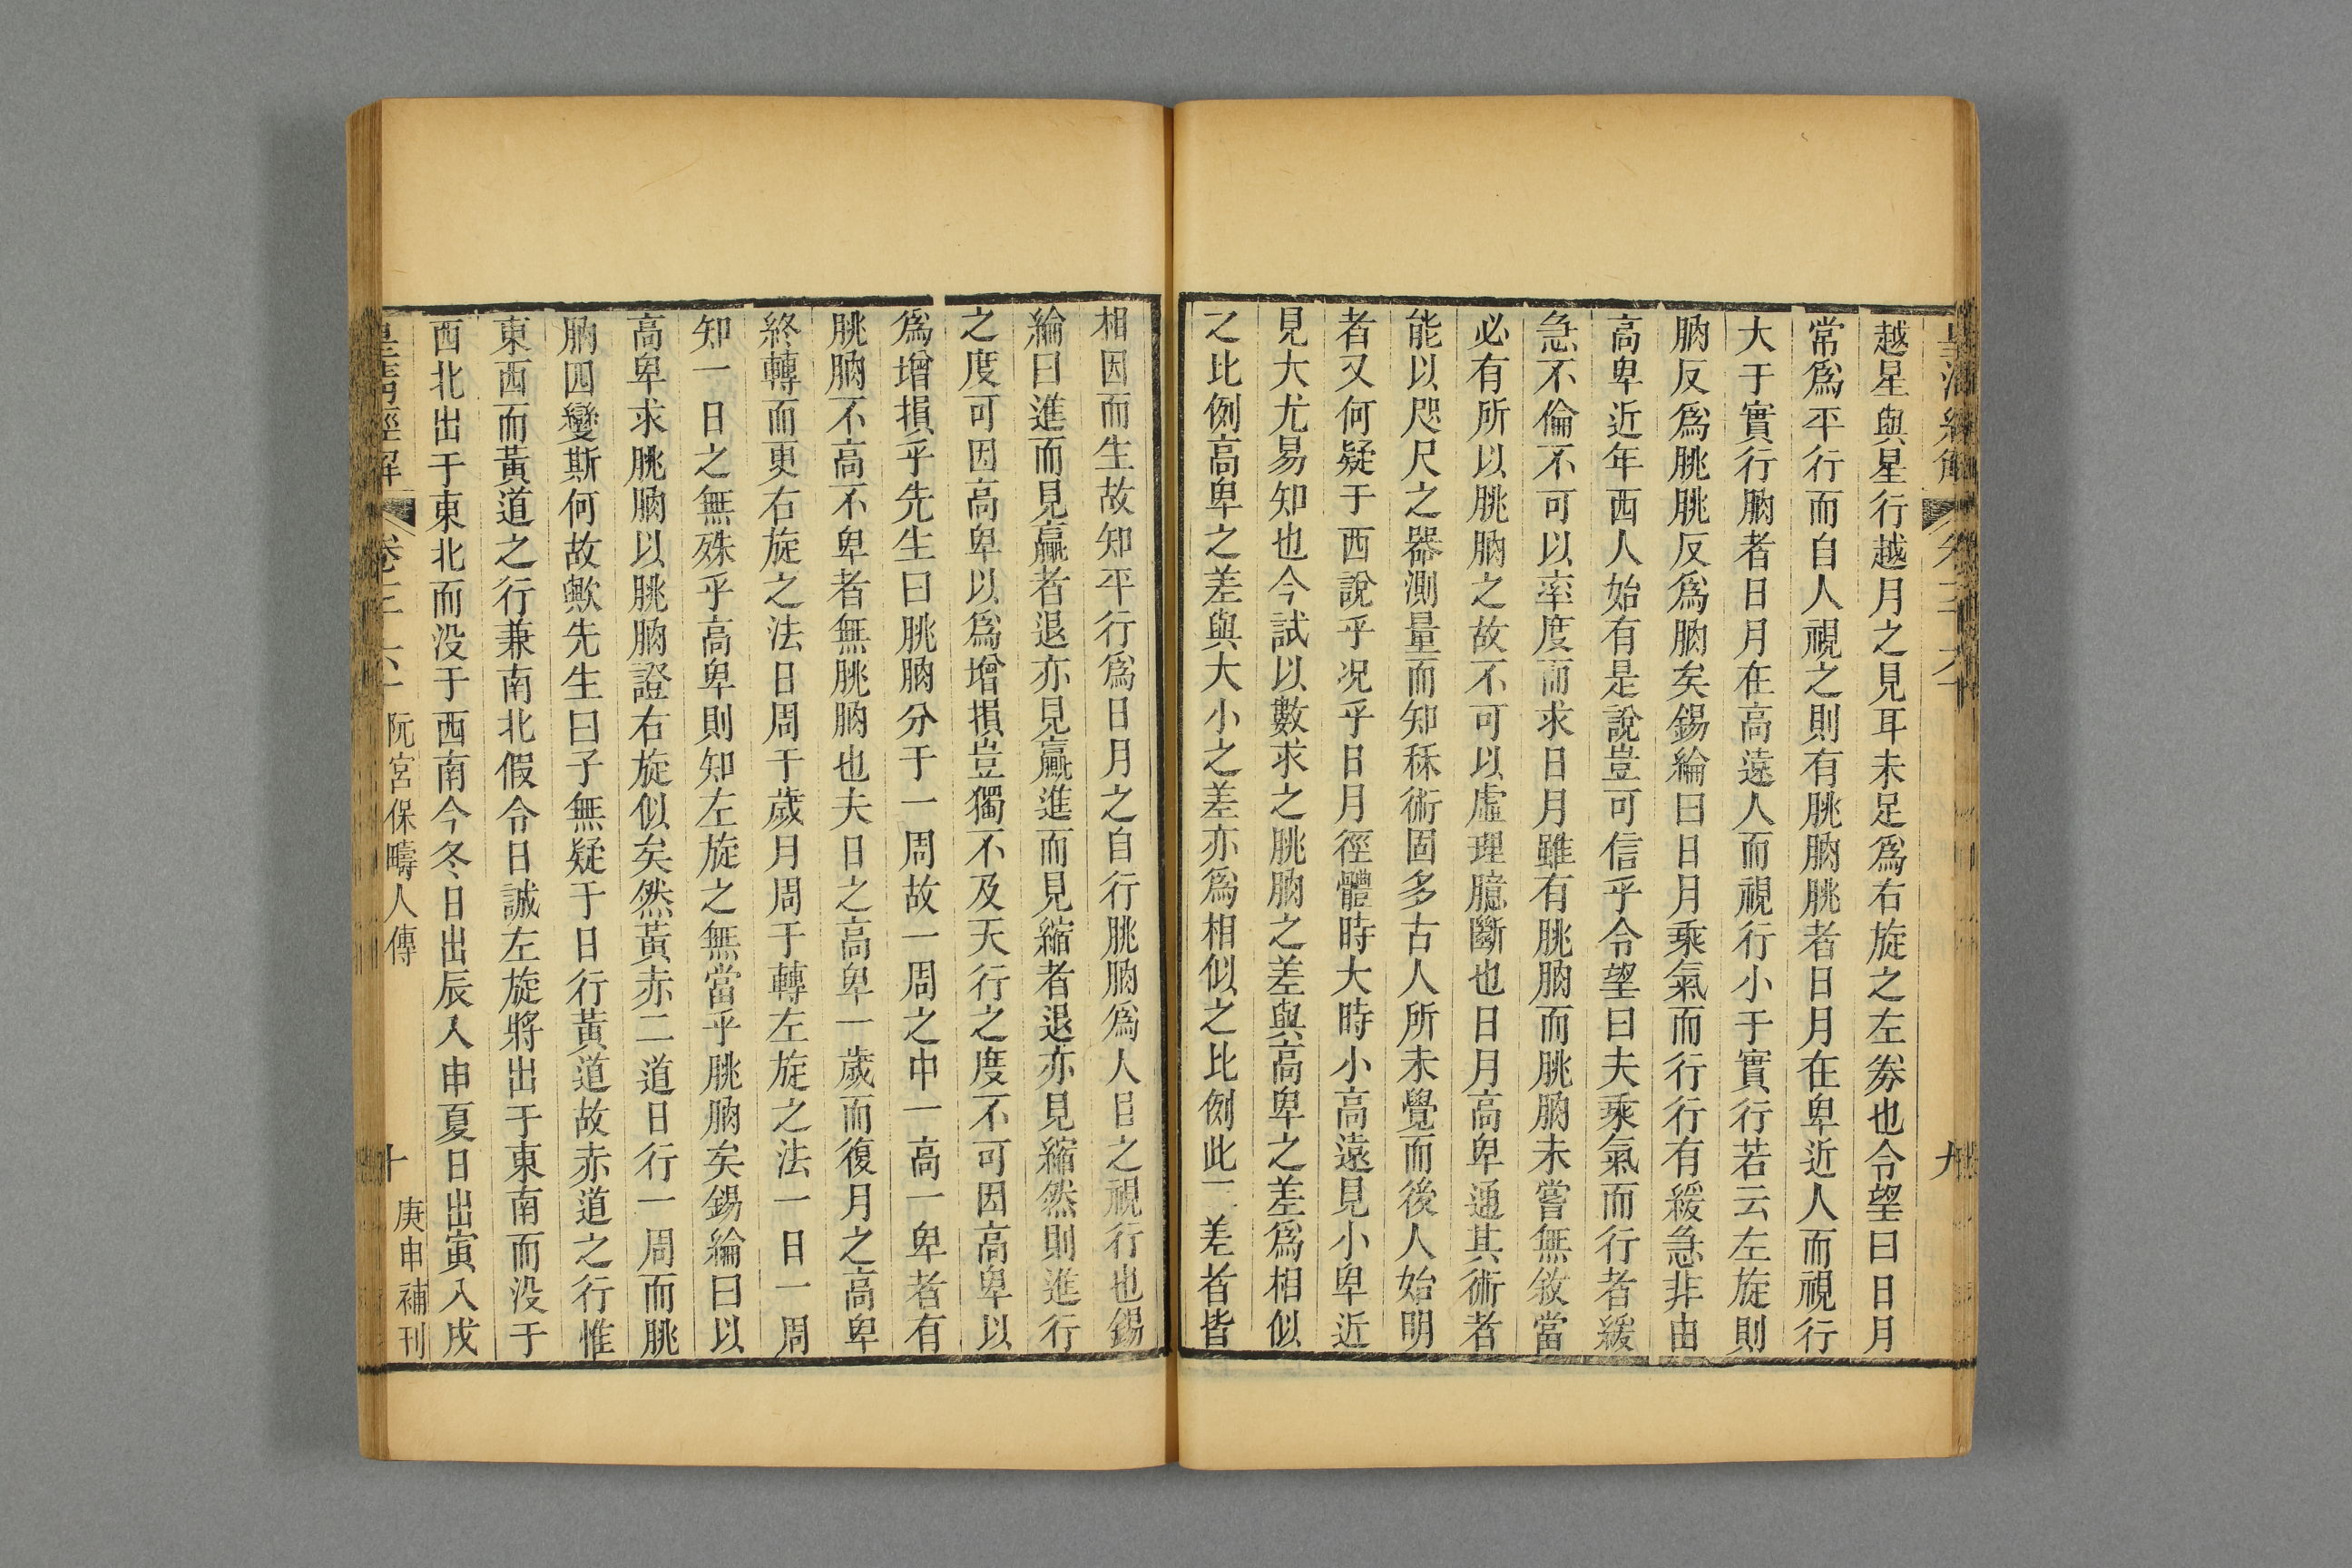 越星與星行越月之見耳未足爲右旋之左劵也令望曰日月
常爲平行而自人視之則有朓朒朓者日月在卑近人而視行
大于實行朒者日月在高遠人而視行小于實行若云左旋則
朒反爲朓朓反爲朒矣錫綸曰日月乘氣而行行有緩急非由
高卑近年西人始有是說豈可信乎令望曰夫乘氣而行者緩
急不倫不可以率度而求日月雖有朓朒而朓朒未嘗無敘當
必有所以朓朒之故不可以虛理臆斷也日月高卑通其術者
能以咫尺之器測量而知秝術固多古人所未覺而後人始明
者又何疑于西說乎况乎日月徑體時大時小高遠見小卑近
見大尤易知也今試以數求之朓朒之差與高卑之差爲相似
之比例高卑之差與大小之差亦爲相似之比例此二差者皆
相因而生故知平行爲日月之自行朓朒爲人目之視行也錫
綸曰進而見贏者退亦見贏進而見縮者退亦見縮然則進行
之度可因高卑以爲增損豈獨不及天行之度不可因高卑以
爲增損乎先生曰朓朒分于一周故一周之中一高一卑者有
朓朒不高不卑者無朓朒也夫日之高卑一歲而復月之高卑
終轉而更右旋之法日周于歲月周于轉左旋之法一日一周
知一日之無殊乎高卑則知左旋之無當乎朓朒矣錫綸曰以
高卑求朓朒以朓朒證右旋似矣然黃赤二道日行一周而朓
朒四變斯何故歟先生曰子無疑于日行黃道故赤道之行惟
東西而黃道之行兼南北假令日誠左旋將出于東南而没于
西北出于東北而没于西南今冬日出辰入申夏日出寅入戌
皇淸經解
阮宮保疇人傳
十
庚申補刊
九